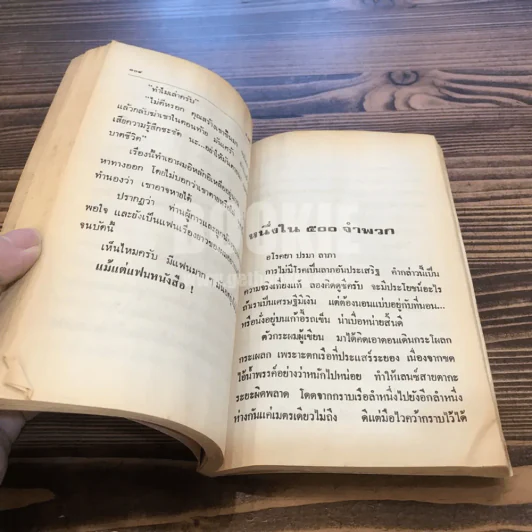 "ทำไมเล่าครับ"
"ไม่ดีหรอก คุณสร้าง
แล้วกลับฆ่าเขาในตอนท้าย มันเศร้า
เสียความรู้สึกชะชัด นะ...อย่าให้มัน
บาดชีวิต"
เรื่องนี้ทำเอาผมอึหลักอีเหลื่อ
หาทางออก โดยไม่บอกว่าเขาตาย
ทำนองว่า เขาอาจหายได้
ปรากฏว่า ท่านผู้การและลูก
พอใจ และยังเป็นแฟนเรื่องยาวของ
จนบัดนี้
เห็นไหมครับ มีแฟนมาก
แม้แต่แฟนหนังสือ !
หนึ่งใน ๕๐๐ จำพวก
อโรคยา ปรมา ลาภา
การไม่มีโรคเป็นลาภอันประเสริฐ คำกล่าวนี้เป็น
ความจริงเที่ยงแท้ ลองคิดดูซิครับ จะมีประโยชน์อะไร
ถ้าเราเป็นเศรษฐีมีเงิน แต่ต้องนอนแบ่บอยู่กับที่นอน...
หรือนั่งอยู่บนเก้าอี้รถเข็น น่าเบื่อหน่ายสิ้นดี
ตัวกระผมผู้เขียน มาได้คิดเอาตอนเดินกระโผลก
กระเผลก เพราะตกเรือที่ประแสร์ระยอง เนื่องจากซด
ไอ้น้ำพรรค์อย่างว่าหนักไปหน่อย ทำให้เลนซ์สายตากะ
ระยะผิดพลาด โดดจากกราบเรือลำหนึ่งไปยังอีกลำหนึ่ง
ห่างกันแค่เมตรเดียวไม่ถึง ดีแต่มือไวคว้ากราบไว้ได้